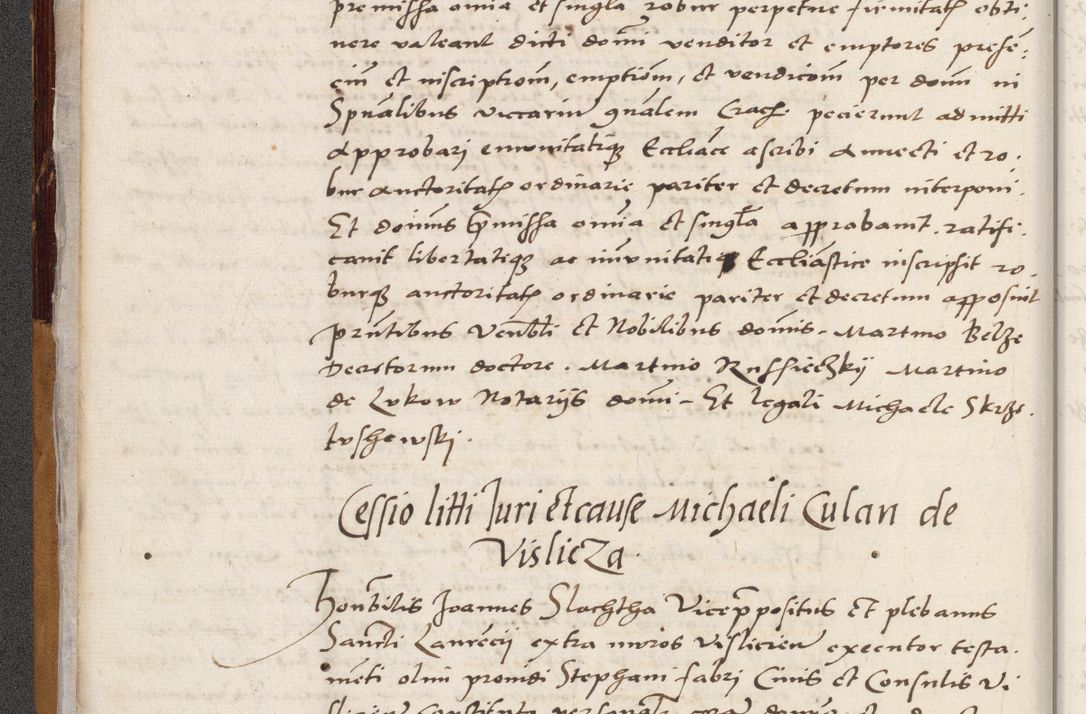 premissa omia et singla robur perpetue firmitatis obti:
nere valeant dicti domi venditor et emptores presen:
cim et inscriptiom, emptiom, et vendicom per domi in
Spualibus viccarium gnalem Crac. pecierunt admitti
approbari emunitatiq Eccliace ascribi annecti et ro.
bur auctoritatis ordinarie pariter et decretum interponi.
Et doimus pmissa omia et singla approbamt. ratifi.
cauit libertatiq ac imunitatiq Eccliastice inscripsit ro.
burq auctoritatis ordinarie pariter et decretum apposuit
pntibus Venbli et Nobilibus domis. Martino Belze
Decretorum doctore. Martino Russieczkij Martino
de Lukow Notarijs domi. Et legali Michaele Skrze.
tushewskj.
Cessio litti Juri et cause Michaeli Culan de
Vislicza.
Honbilis Joannes Slachtha Vicepropositus et plebanus
Sancti Laurecii extra muros Vislicien executor testa.
meti olim prouidi Stephani fabri Ciuis et Consulis Vi